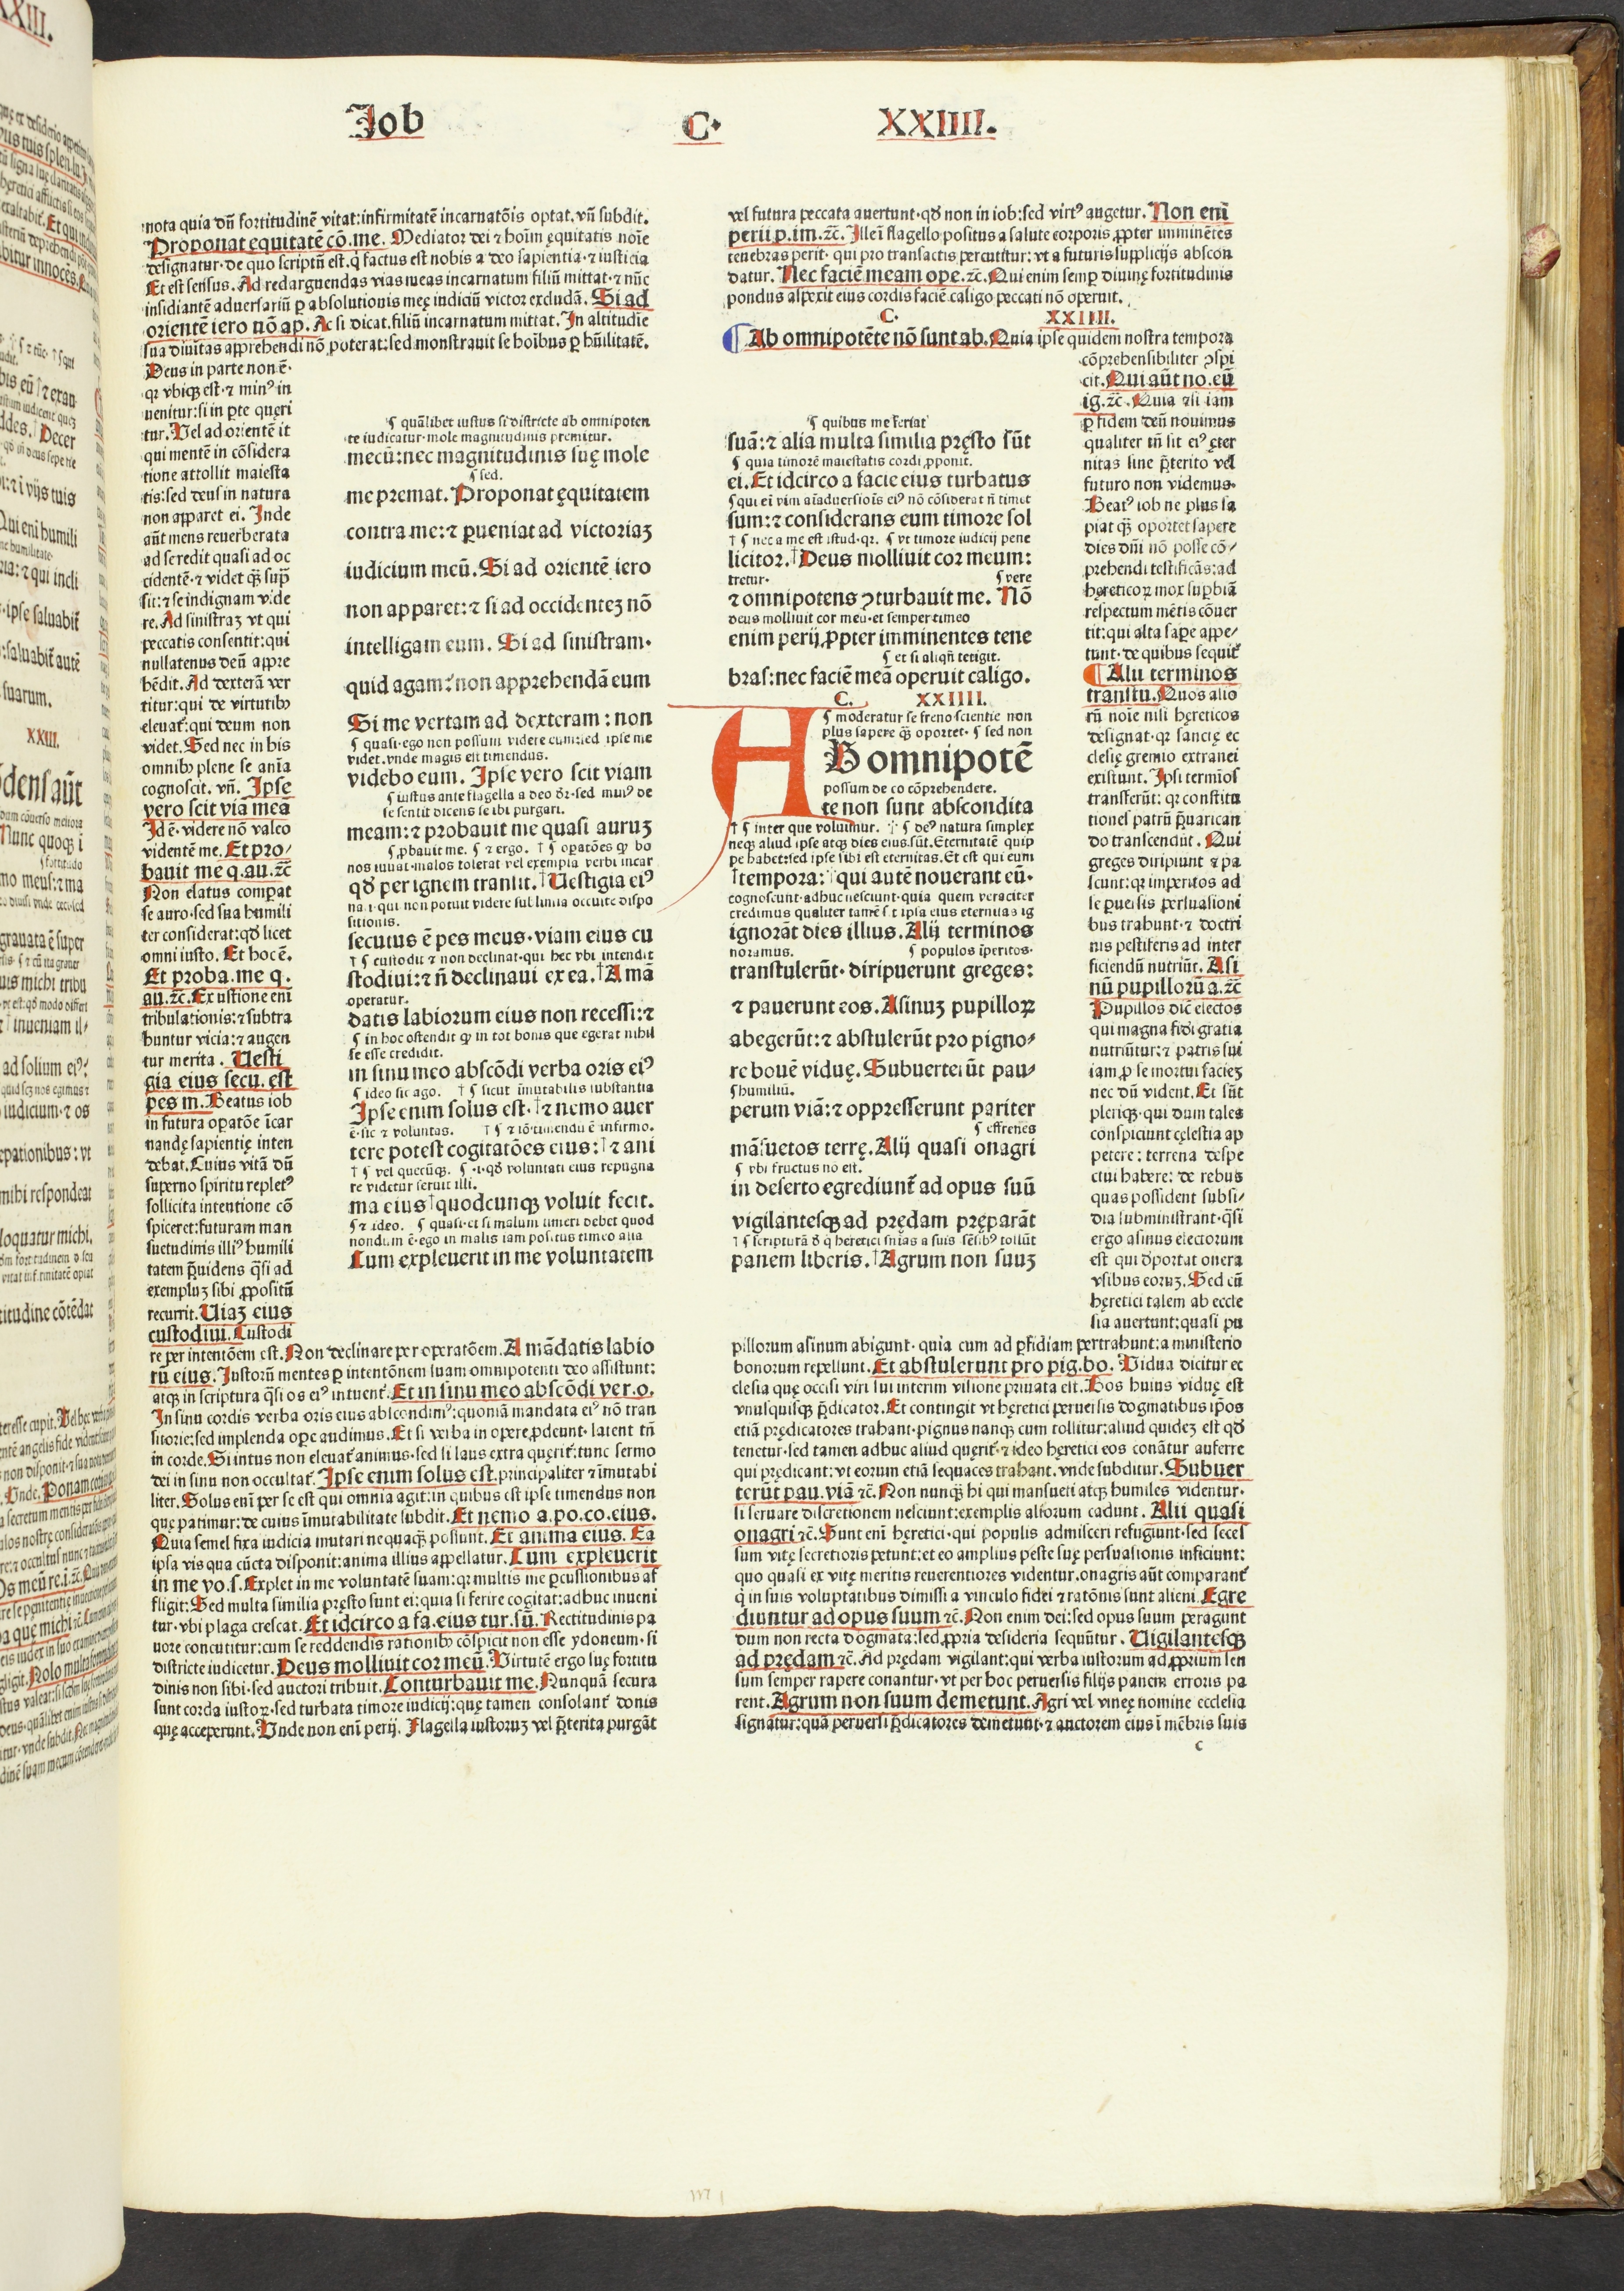 Job C. XXIIII.
nota quia dn̄ fortitudinē vitat: infirmitatē incarnatōis optat. vn̄ subdit.
Proponat equitatē cō. me. Mediator dei ⁊ hoīm ęquitatis noīe
designatur. de quo scriptū est. q̇ factus est nobis a deo sapientia. ⁊ iusticia
Et est sensus. Ad redarguendas vias meas incarnatum filiū mittat. ⁊ nūc
insidiantē aduersariū ꝑ absolutionis meę iudiciū victor excludā. Si ad
orientē iero nō ap. Ac si dicat. filiū incarnatum mittat. In altitudīe
sua diuītas apprehendi nō poterat: sed monstrauit se hoībus ꝑ hūilitatē.
Deus in parte non ē.
qr vbiqꝫ est. ⁊ min⁹ in
uenitur: si in ꝑte quęri
tur. Vel ad orientē it
qui mentē in cōsidera
tione attollit maiesta
tis: sed deus in natura
non apparet ei. Inde
aūt mens reuerberata
ad se redit quasi ad oc
cidentē. ⁊ videt qꝫ̄ sup̄
sit: ⁊ se indignam vide
re. Ad sinistraꝫ vt qui
peccatis consentit: qui
nullatenus deū appre
hēdit. Ad dexterā ver
titur: qui de virtutibꝫ
eleuat̄: qui deum non
videt. Sed nec in his
omnibꝫ plene se aīa
cognoscit. vn̄. Ipse
vero scit viā meā
Id ē. videre nō valeo
videntē me. Et pro/
bauit me q. au. ⁊c̄
Non elatus compat
se auro. sed sua humili
ter considerat: qd̄ licet
omni iusto. Et hoc ē.
Et proba. me q.
au. ⁊c̄. Ex ustione eni
tribulationis: ⁊ subtra
huntur vicia: ⁊ augen
tur merita. Uesti
gia eius secu. est
pes m. Beatus iob
in futura oꝑatōe īcar
nandę sapientię inten
debat. Cuius vitā dū
superno spiritu replet⁹
sollicita intentione cō
spiceret: futuram man
suetudinis illi⁹ humili
tatem p̄uidens q̄si ad
exempluꝫ sibi ꝓpositū
recurrit. Uiaꝫ eius
custodiui. Custodi
re per intentōem est. Non declinare per operatōem. A mādatis labio
rū eius. Justorū mentes ꝑ intentōnem suam omnipotenti deo assistunt:
atqꝫ in scriptura q̄si os ei⁹ intuent̄. Et in sinu meo abscōdi ver. o.
In sinu cordis verba oris eius abscondim⁹: quoniā mandata ei⁹ nō tran
sitorie: sed implenda oꝑe audimus. Et si verba in opere ꝓdeunt. latent tn̄
in corde. Si intus non eleuat̄ animus. sed si laus extra quęrit̄: tunc sermo
dei in sinu non occultat̄. Ipse enim solus est. principaliter ⁊ īmutabi
liter. Solus enī per se est qui omnia agit: in quibus est ipse timendus non
que patimur: de cuius īmutabilitate subdit. Et nemo a. po. co. eius.
Quia semel fixa iudicia mutari nequaqꝫ̄ possunt. Et anima eius. Ea
ipsa vis qua cūcta disponit: anima illius appellatur. Cum expleuerit
in me vo. s. Explet in me voluntatē suam: qr multis me ꝑcussionibus af
fligit: Sed multa similia pręsto sunt ei: quia si ferire cogitat: adhuc inueni
tur. vbi plaga crescat. Et idcirco a fa. eius tur. sū. Rectitudinis pa
uore concutitur: cum se reddendis rationibꝫ cōspicit non esse ydoneum. si
districte iudicetur. Deus molliuit cor meū. Virtutē ergo suę fortitu
dinis non sibi. sed auctori tribuit. Conturbauit me. Nunquā secura
sunt corda iustoꝝ. sed turbata timore iudicij: quę tamen consolant̄ donis
quę acceperunt. Vnde non enī perij. Flagella iustoruꝫ vel p̄terita purgāt
¶ quālibet iustus si districte ab omnipoten
te iudicatur. mole magnitudinis premitur.
mecū: nec magnitudinis suę mole
¶ sed.
me premat. Proponat ęquitatem
contra me: ⁊ ꝑueniat ad victoriaꝫ
iudicium meū. Si ad orientē iero
non apparet: ⁊ si ad occidenteꝫ nō
intelligam eum. Si ad sinistram.
quid agam: non apprehendā eum
Si me vertam ad dexteram: non
¶ quasi. ego non possum videre eum: sed ipse me
videt. vnde magis est timendus.
videbo eum. Ipse vero scit viam
¶ iustus ante flagella a deo d̄r. sed mui⁹ de
se sentit dicens se ibi purgari.
meam: ⁊ probauit me quasi auruꝫ
¶ ꝓbauit me. ¶ ⁊ ergo. † ¶ oꝑatōes qꝫ bo
nos iuuat. malos tolerat vel exempla verbi incar
qd̄ per ignem transit. † Uestigia ei⁹
nati. qui non potuit videre sublimia occulte dispo
sitionis.
secutus ē pes meus. viam eius cu
† ¶ custodit ⁊ non declinat. qui hec vbi intendit
stodiui: ⁊ n̄ declinaui ex ea. † A mā
operatur.
datis labiorum eius non recessi: ⁊
¶ in hoc ostendit qꝫ in tot bonis que egerat nihil
se esse credidit.
in sinu meo abscōdi verba oris ei⁹
¶ ideo sic ago. † ¶ sicut īmutabilis substantia
Ipse enim solus est. † ⁊ nemo auer
ē. sic ⁊ voluntas. † ¶ ⁊ iō. timendū ē infirmo.
tere potest cogitatōes eius: † ⁊ ani
† ¶ vel quecūqꝫ. ¶ .i. qd̄ voluntati eius repugna
re videtur seruit illi.
ma eius † quodcunqꝫ voluit fecit.
¶ ⁊ ideo. ¶ quasi. et si malum timeri debet quod
nondum ē. ego in malis iam positus timeo alia
Cum expleuerit in me voluntatem
vel futura peccata auertunt. qd̄ non in iob: sed virt⁹ augetur. Non enī
perii ꝑ. im. ⁊c̄. Ille ī flagello positus a salute corporis ꝓpter imminētes
tenebras perit. qui pro transactis percutitur: vt a futuris supplicijs abscon
datur. Nec faciē meam ope. ⁊c̄. Qui enim semꝑ diuinę fortitudinis
pondus aspexit eius cordis faciē caligo peccati nō operuit.
C. XXIIII.
¶ Ab omnipotēte nō sunt ab. Quia ipse quidem nostra tempora
cōprehensibiliter ꝯspi
cit. Qui aūt no. eū
ig. ⁊c̄. Quia ⁊ si iam
ꝑ fidem deū nouimus
qualiter tn̄ sit ei⁹ ęter
nitas sine p̄terito vel
futuro non videmus.
Beat⁹ iob ne plus sa
piat qꝫ̄ oportet sapere
dies dn̄i nō posse cō/
prehendi testificās: ad
hęreticoꝝ mox suꝑbiā
respectum mētis cōuer
tit: qui alta saꝑe appe/
tunt. de quibus sequit̄
¶ Alii terminos
transtu. Quos alio
rū noīe nisi hęreticos
designat. qr sanctę ec
clesię gremio extranei
existunt. Ipsi termīos
transferūt: qr constitu
tiones patrū p̄uarican
do transcendūt. Qui
greges diripiunt ⁊ pa
scunt: qr imperitos ad
se ꝑuersis persuasioni
bus trahunt. ⁊ doctri
nis pestiferis ad inter
ficiendū nutriūt. Asi
nū pupillorū a. ⁊c̄
Pupillos dic̄ electos
qui magna fidei gratia
nutriūtur: ⁊ patris sui
iam ꝓ se mortui facieꝫ
nec dū vident. Et sūt
pleriqꝫ. qui dum tales
conspiciunt cęlestia ap
petere: terrena despe
ctui habere: de rebus
quas possident subsi/
dia subministrant. q̄si
ergo asinus electorum
est qui dportat onera
vsibus eoruꝫ. Sed cū
hęretici talem ab eccle
sia auertunt: quasi pu
pillorum asinum abigunt. quia cum ad ꝑfidiam pertrahunt: a ministerio
bonorum repellunt. Et abstulerunt pro pig. bo. Vidua dicitur ec
clesia quę occisi viri sui interim visione priuata est. Bos huius viduę est
vnusquisqꝫ p̄dicator. Et contingit vt hęretici peruersis dogmatibus ip̄os
etiā prędicatores trahant. pignus nanqꝫ cum tollitur: aliud quideꝫ est qd̄
tenetur. sed tamen adhuc aliud quęrit̄. ⁊ ideo hęretici eos conātur auferre
qui prędicant: vt eorum etiā sequaces trahant. vnde subditur. Subuer
terūt pau. viā ⁊c̄. Non nunqꝫ̄ hi qui mansueti atqꝫ humiles videntur.
si seruare discretionem nesciunt: exemplis aliorum cadunt. Alii quasi
onagri ⁊c̄. Sunt enī hęretici. qui populis admisceri refugiunt. sed seces
sum vitę secretioris petunt: et eo amplius peste suę persuasionis inficiunt:
quo quasi ex vitę meritis reuerentiores videntur. onagris aūt comparant̄
q̇ in suis voluptatibus dimissi a vinculo fidei ⁊ ratōnis sunt alieni. Egre
diuntur ad opus suum ⁊c̄. Non enim dei: sed opus suum peragunt
dum non recta dogmata: sed ꝓpria desideria sequūtur. Uigilantesqꝫ
ad prędam ⁊c̄. Ad prędam vigilant: qui verba iustorum ad ꝓprium sen
sum semper rapere conantur. vt per hoc peruersis filijs panem erroris pa
rent. Agrum non suum demetunt. Agri vel vineę nomine ecclesia
signatur: quā peruersi p̄dicatores demetunt. ⁊ auctorem eius ī mēbris suis
¶ quibus me feriat
suā: ⁊ alia multa similia pręsto sūt
¶ quia timorē maiestatis cordi ꝓponit.
ei. Et idcirco a facie eius turbatus
¶ qui ei vim aīaduersiōis ei⁹ nō cōsiderat n̄ timet
sum: ⁊ considerans eum timore sol
† ¶ nec a me est istud. qr. ¶ vt timore iudicij pene
licitor. † Deus molliuit cor meum:
tretur. ¶ vere
⁊ omnipotens ꝯturbauit me. Nō
deus molliuit cor meū. et semper timeo
enim perij ꝓpter imminentes tene
¶ et si aliqn̄ tetigit.
bras: nec faciē meā operuit caligo.
C. XXIIII.
¶ moderatur se freno scientie non
plus sapere qꝫ̄ oportet. ¶ sed non
AB omnipotē
possum de eo cōprehendere.
te non sunt abscondita
† ¶ inter que voluimur. ¶ de⁹ natura simplex
neqꝫ aliud ipse atqꝫ dies eius. sūt. Eternitatē quip
pe habet: sed ipse sibi est eternitas. Et est qui eum
† tempora: † qui autē nouerant eū.
cognoscunt. adhuc nesciunt. quia quem veraciter
credimus qualiter tamē sit ipsa eius eternitas ig
ignorāt dies illius. Alij terminos
noramus. ¶ populos īperitos.
transtulerūt. diripuerunt greges:
⁊ pauerunt eos. Asinuꝫ pupilloꝝ
abegerūt: ⁊ abstulerūt pro pigno/
re bouē viduę. Subuerterūt pau/
¶ humiliū.
perum viā: ⁊ oppresserunt pariter
¶ effrenes
māsuetos terrę. Alij quasi onagri
¶ vbi fructus nō est.
in deserto egrediunt̄ ad opus suū
vigilantesqꝫ ad prędam pręparāt
† ¶ scripturā d̄ q̇ heretici snīas a suis sēsib⁹ tollūt
panem liberis. † Agrum non suuꝫ
c